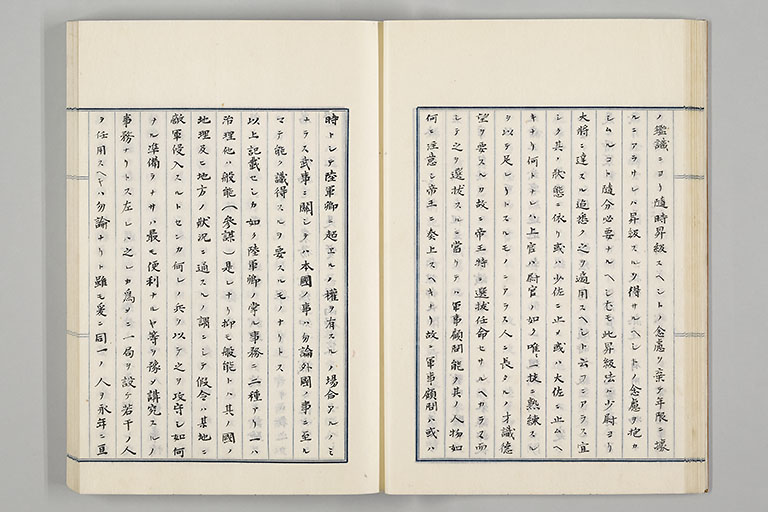 ノ鑑識ニヨリ随時昇級スヘントノ念慮ヲ棄テ年限ニ據
ルニアラサレハ昇級スルヲ得サルヘシトノ念慮ヲ抱カ
シムルコト随分必要ナルヘシ尤モ此昇級法ハ少尉ヨリ
大将ニ達スル迄悉ク之ヲ適用スヘシト云フニアラス宜
シク其ノ状態ニ依リ或ハ少佐ニ止メ或ハ大佐ニ止ムヘ
キナリ何トナレハ上官ハ尉官ノ如ク唯一技ニ熟練スル
ヲ以テ足レリトスルモノニアラス人ニ長タルノ才識徳
望ヲ要スルカ故ニ帝王特ニ選抜任命セサルヘカラス而
シテ之ヲ選抜スルニ當リテハ軍事顧問能ク其ノ人物如
何ニ注意シ帝王ニ奏上スヘキナリ故ニ軍事顧問ハ或ハ
時トシテ陸軍卿ニ超エルノ權ヲ有スルノ場合アルノミ
ナラス武事ニ關シテハ本國ノ事ハ勿論外國ノ事ニ至ル
マテ能ク識得スルヲ要スルモノナリトス
以上記載センカ如ク陸軍卿ノ掌ル事務ニ二種アリ一ハ
治理他ハ般能(参謀)是レナリ抑モ般能トハ其ノ國ノ
地理及ヒ地方ノ状況ニ通スルノ謂ニシテ假令ハ某地ニ
敵軍侵入スルトセンカ何レノ兵ヲ以テ之ヲ攻守シ如何
ナル準備ヲナサハ最モ便利ナルヤ等ヲ豫メ講究スルノ
事務ナリトス左レハ之レカ為メニ一局ヲ設ケ若干ノ人
ヲ任用スヘキハ勿論ナリト雖モ爰ニ同一ノ人ヲ永年ニ亘